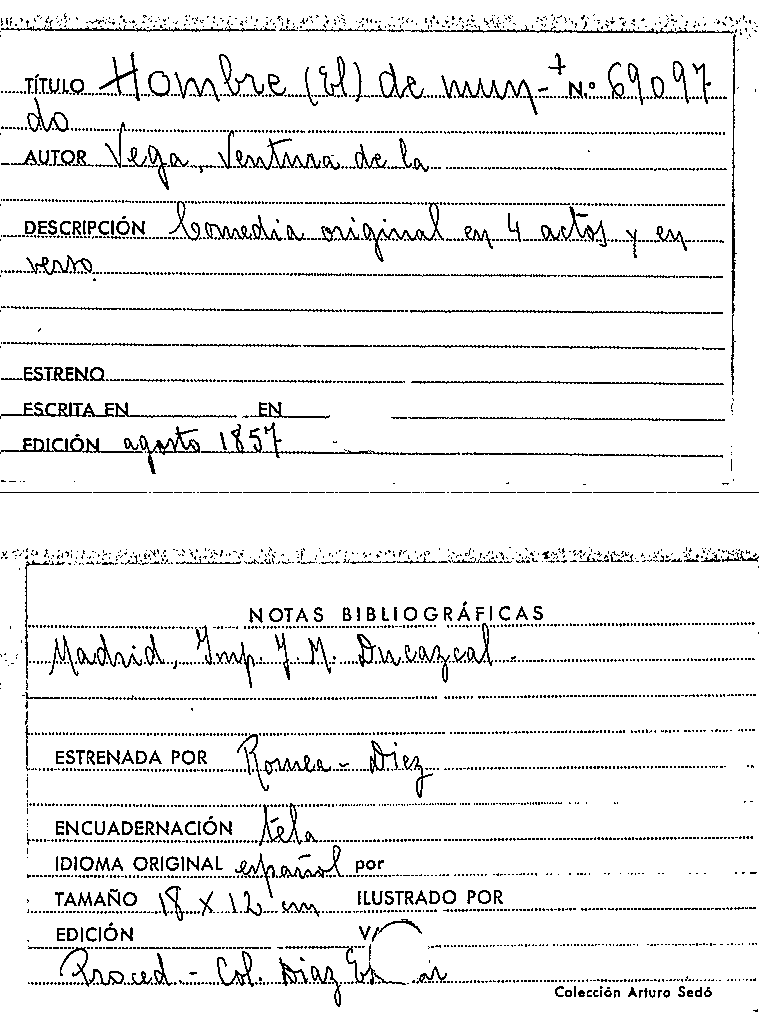 TÍTULO Hombre (El) de mun- N.º 69097
do
AUTOR Vega, Ventura de la
DESCRIPCIÓN Comedia original en 4 actos y en
verso
ESTRENO
ESCRITA EN EN
EDICIÓN agosto 1857
NOTAS BIBLIOGRÁFICAS
Madrid, Imp. J. M. Ducazcal.
ESTRENADA POR Romea - Diez
ENCUADERNACIÓN tela
IDIOMA ORIGINAL español por
TAMAÑO 18 x 12 cm ILUSTRADO POR
EDICIÓN
Proced. - Col. Diaz
Colección Arturo Sedó